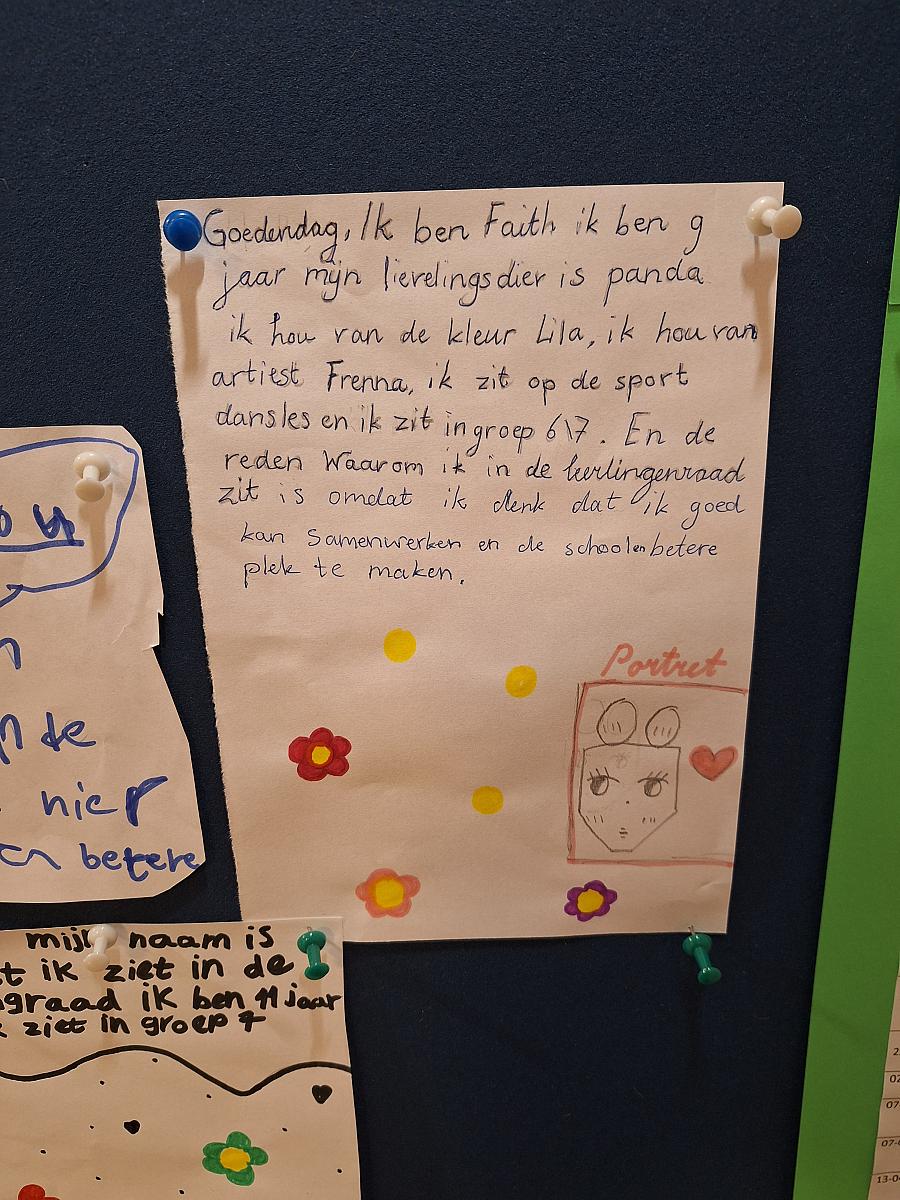 Goedendag, Ik ben Faith ik ben 9
jaar mijn lievelingsdier is panda
ik hou van de kleur Lila, ik hou van
artiest Frenna, ik zit op de sport
dansles en ik zit in groep 6\7. En de
reden Waarom ik in de leerlingenraad
zit is omdat ik denk dat ik goed
kan samenwerken en de school en betere
plek te maken.
Portret
ou
n
n de
hier
en betere
mijn naam is
t ik ziet in de
ngraad ik ben 11 jaar
k ziet in groep 7
02
07-
07-0
13-04